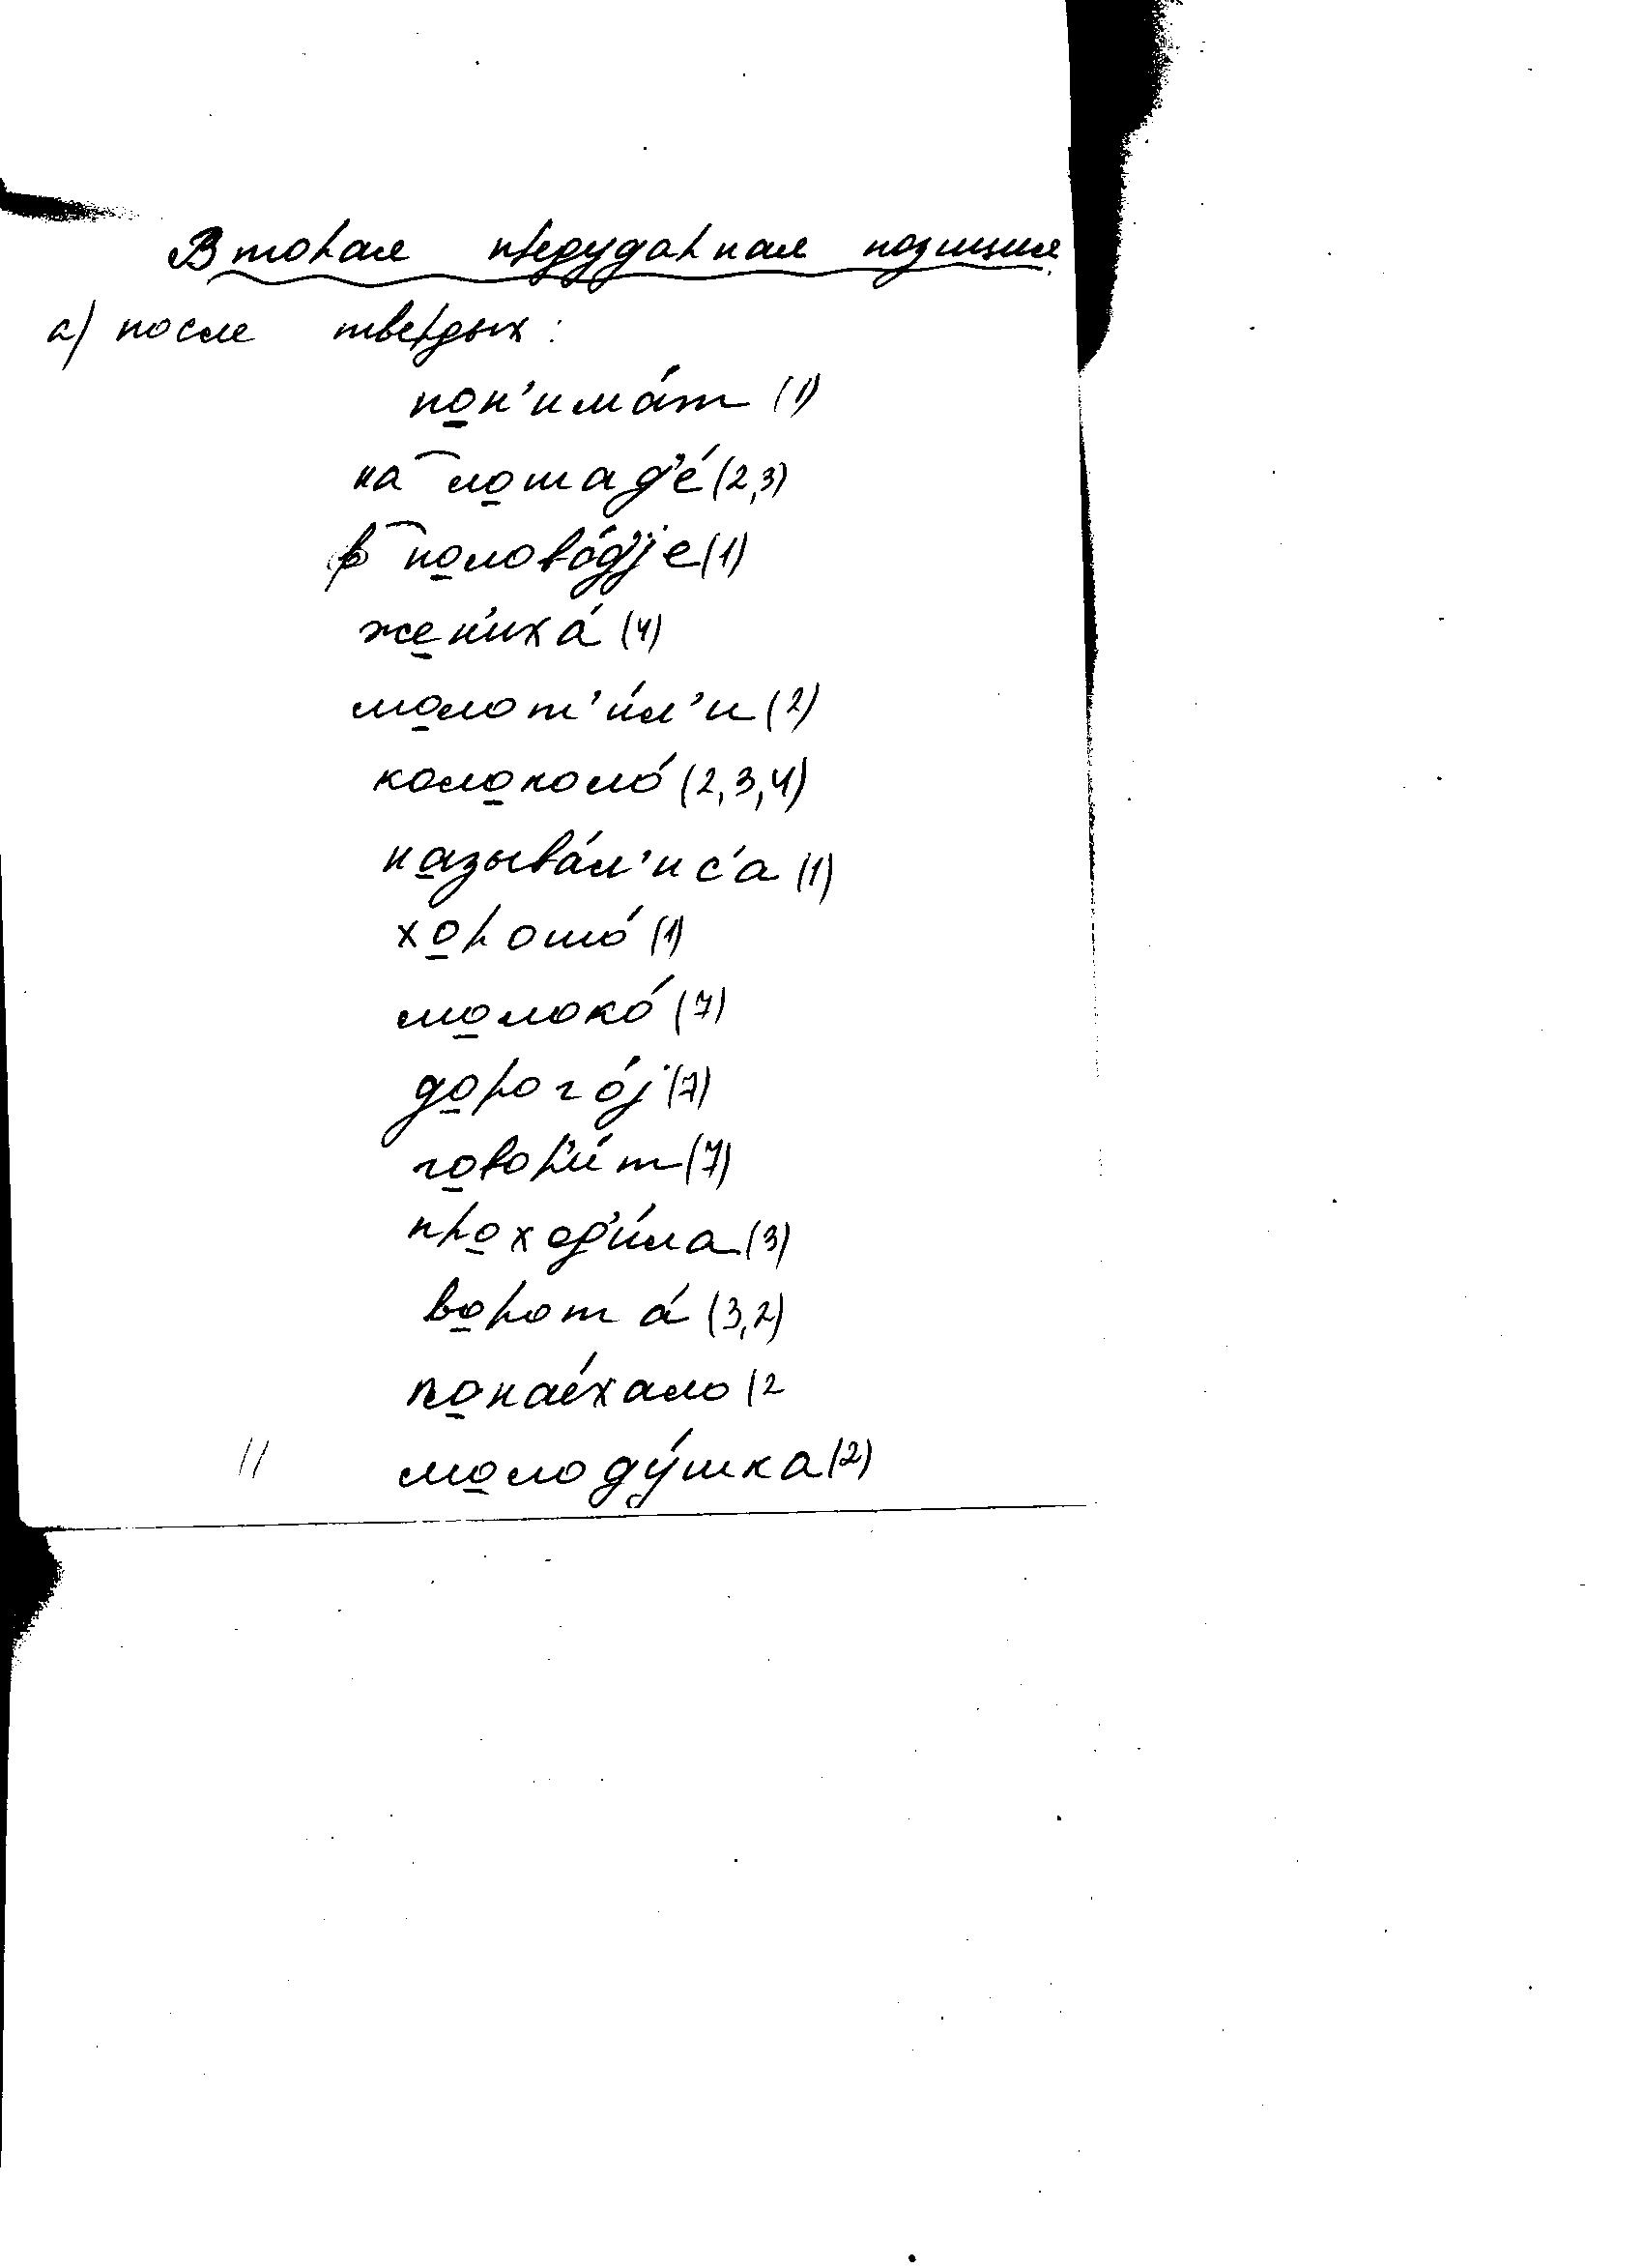 Вторая предударная позиция
а) после твердых:
пон'има́т (1)
на лошад'е́ (2,3)
в половóд'jе (1)
жен'иха́ (4)
молот'и́л'и (2)
колоколо́ (2,3,4)
называ́л'ис'а (1)
хорошо́ (1)
молоко́ (7)
дорого́j (7)
говор'и́т (7)
проход'и́ла (3)
ворота́ (3,2)
понае́хало (2
молоду́шка (2)
11